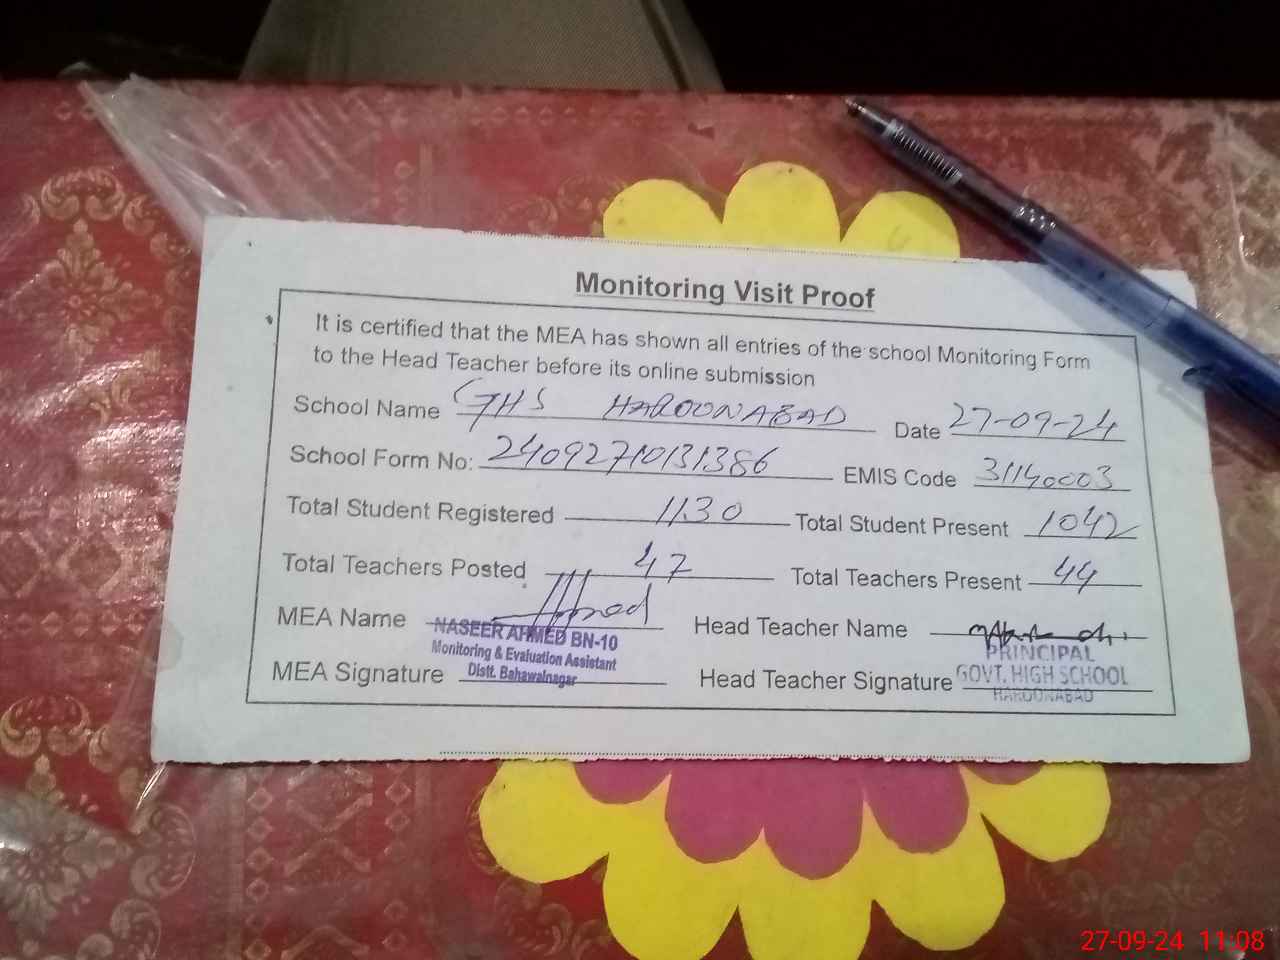 Monitoring Visit Proof
It is certified that the MEA has shown all entries of the school Monitoring Form
to the Head Teacher before its online submission
School Name GHS HAROONABAD Date 27-09-24
School Form No: 24092710131386 EMIS Code 31140003
Total Student Registered 1130 Total Student Present 1042
Total Teachers Posted 47 Total Teachers Present 44
MEA Name Head Teacher Name
NASEER AHMED BN-10
Monitoring & Evaluation Assistant
Distt. Bahawalnagar
MEA Signature Head Teacher Signature
PRINCIPAL
GOVT. HIGH SCHOOL
HAROONABAD
27-09-24 11:08